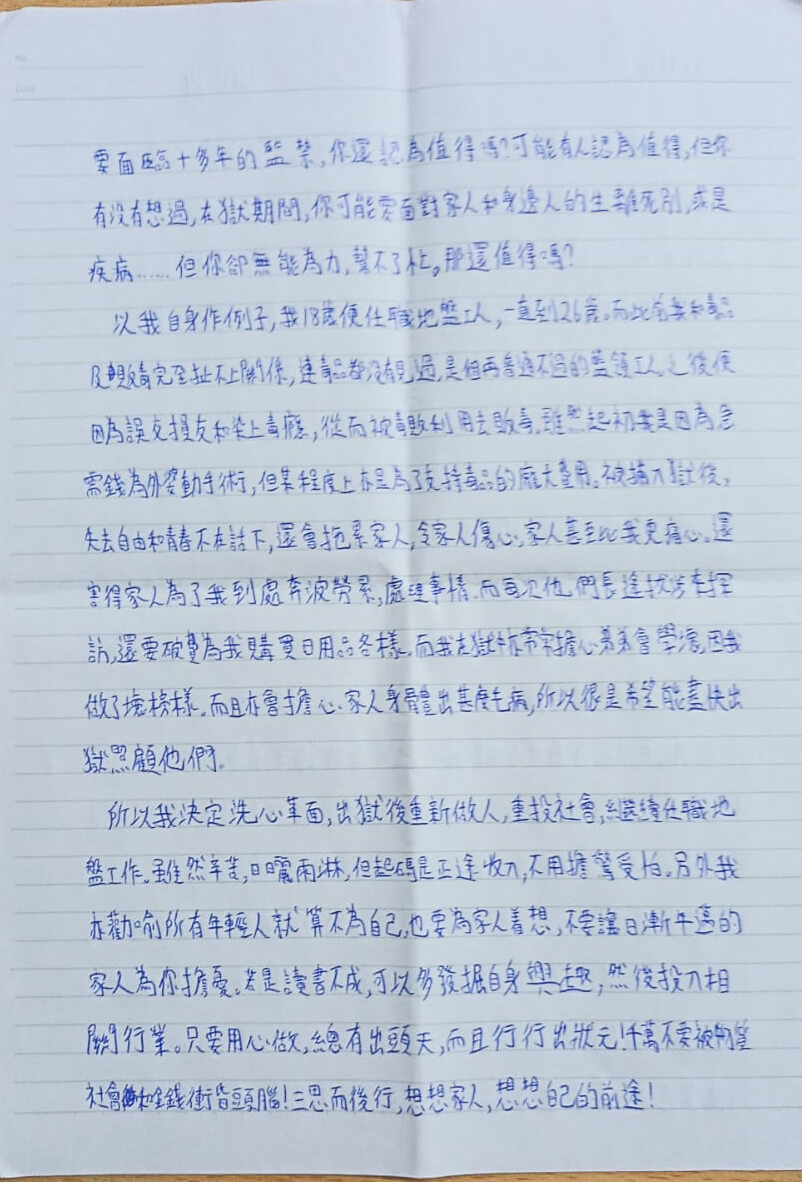 要面臨十多年的監禁,你還認為值得嗎?可能有人認為值得,但你
有沒有想過,在獄期間,你可能要面對家人和身邊人的生離死別,或是
疾病……但你卻無能為力,幫不了忙。那還值得嗎?
以我自身作例子,我18歲便任職地盤工人,一直到26歲。而此前我和毒品
及販毒完全扯不上關係,連毒品都沒有見過,是個再普通不過的藍領工人。之後便
因為誤交損友和染上毒癮,從而被毒販利用去販毒。雖然起初我是因為急
需錢為外婆動手術,但某程度上亦是為了支持毒品的龐大費用。被捕入獄後,
失去自由和青春不在話下,還會拖累家人,令家人傷心,家人甚至比我更痛心。還
害得家人為了我到處奔波勞累,處理事情。而每次他們長途跋涉來探
訪,還要破費為我購買日用品各樣。而我在獄中亦常常擔心弟弟會學壞,因我
做了壞榜樣。而且亦會擔心家人身體出甚麼毛病,所以很是希望能盡快出
獄照顧他們。
所以我決定洗心革面,出獄後重新做人,重投社會,繼續任職地
盤工作。雖然辛苦,日曬雨淋,但起碼是正途收入,不用擔驚受怕。另外我
亦勸喻所有年輕人就算不為自己,也要為家人着想,不要讓日漸年邁的
家人為你擔憂。若是讀書不成,可以多發掘自身興趣,然後投入相
關行業。只要用心做,總有出頭天,而且行行出狀元!千萬不要被物質
社會和金錢衝昏頭腦!三思而後行,想想家人,想想自己的前途!